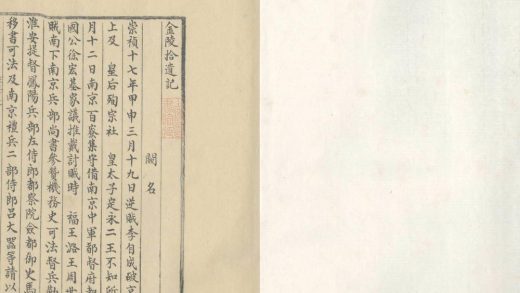 金陵拾遺記
闕名
崇禎十七年甲申三月十九日逆賊李自成破京
上及 皇后殉宗社 皇太子定永二王不知所
月十二日南京百寮集守備南京中軍都督府
國公徐宏基家議推戴討賊時 福王潞王周世
賊南下南京兵部尚書參贊機務史可法督兵勤
淮安提督鳳陽兵部左侍郎都察院僉都御史馬
移書可法及南京禮兵二部侍郎呂大器等請以